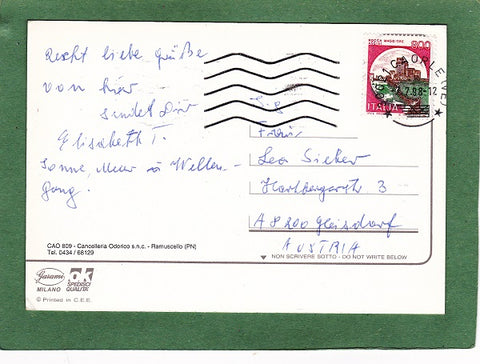 Recht liebe Grüße
von hier
sendet Dir
Elisabeth T.
Sonne, Meer u Wellen-
gang.
ROCCA MAGGIORE
800
ITALIA
CAORLE (VE)
Leo Sieber
Hartbergerstr 3
A 8200 Gleisdorf
AUSTRIA
CAO 809 - Cancelleria Odorico s.n.c. - Ramuscello (PN)
Tel. 0434 / 68129
▼ NON SCRIVERE SOTTO - DO NOT WRITE BELOW
Garami
MILANO
OK
SPEDRICI
QUALITÀ
© Printed in C.E.E.